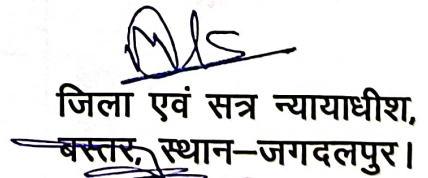 जिला एवं सत्र न्यायाधीश,
बस्तर, स्थान–जगदलपुर।